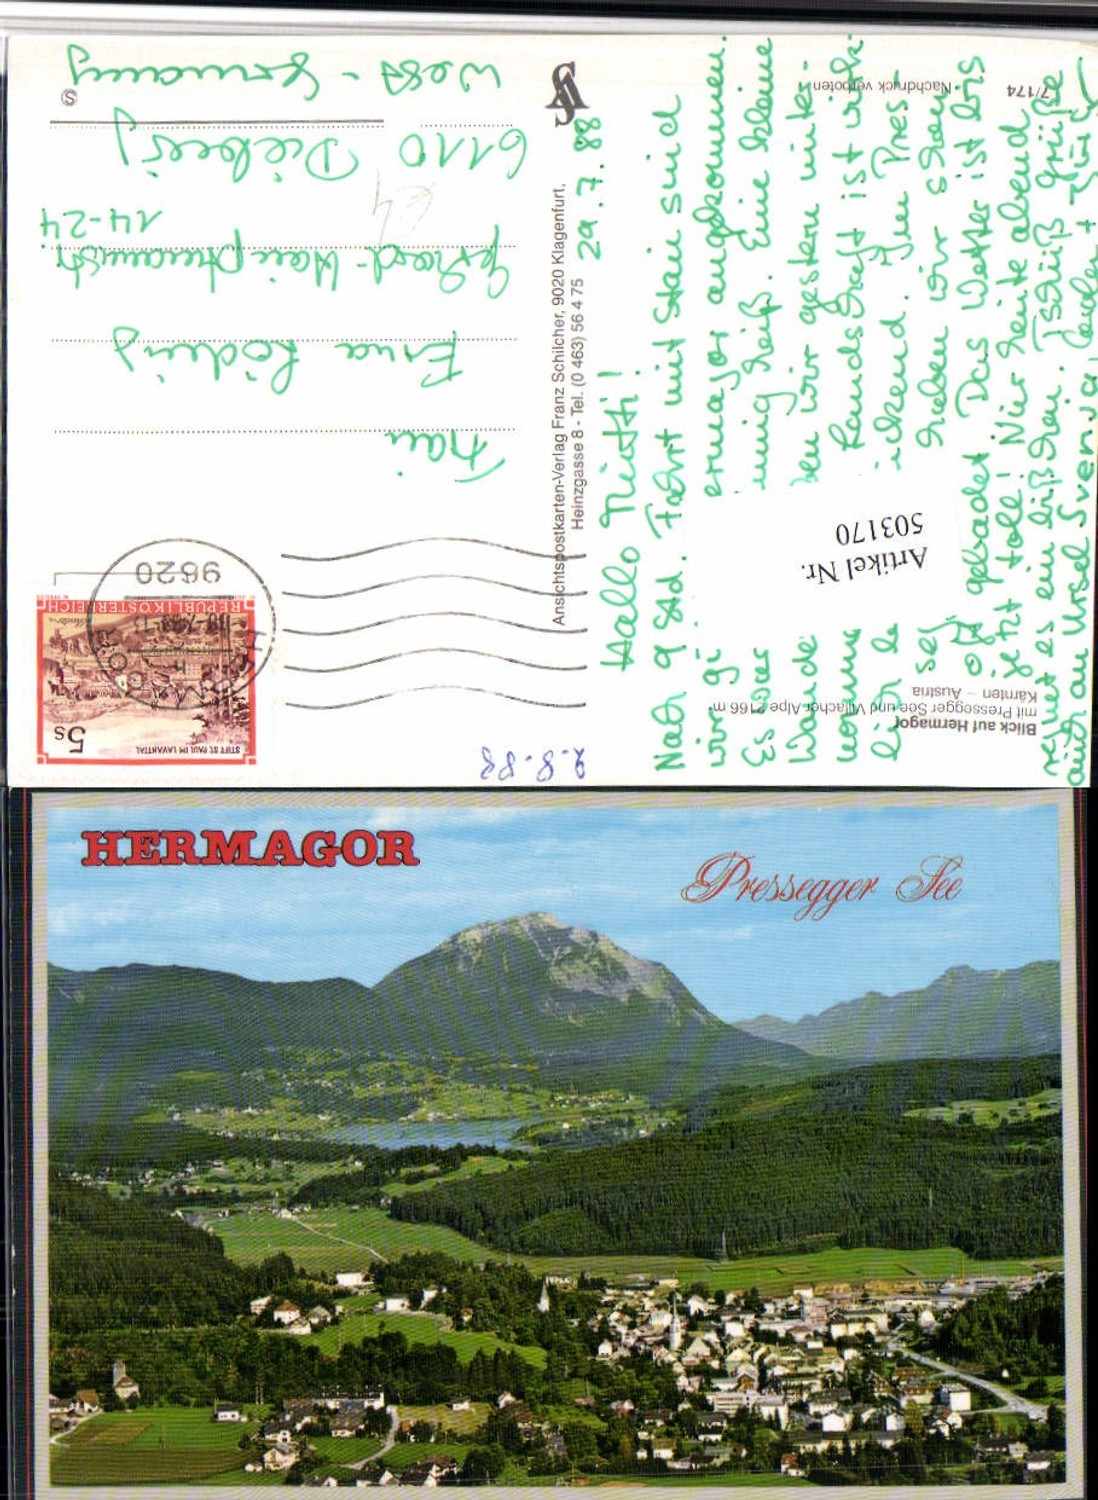 Hallo Mutti! 29.7.88
Nach 9 Std. Fahrt mit Stau sind
wir ermagor angekommen.
Es war ig heiß. Eine kleine
Wande ben wir gestern unter-
nomme Landschaft ist wirk-
lich be ickend. Im Pres-
seg haben wir schon
oft gebadet. Das Wetter ist bis
jetzt toll! Nur heute abend
regnet es ein bißchen. Tschüß Grüße
auch an Ursel Svenja,
Artikel Nr.
503170
Blick auf Hermagor
mit Pressegger See und Villacher Alpe 2166 m
Kärnten – Austria
7/174
Nachdruck verboten
Ansichtspostkarten-Verlag Franz Schilcher, 9020 Klagenfurt,
Heinzgasse 8 - Tel. (0 463) 56 4 75
2.8.88
STIFT ST. PAUL IM LAVANTTAL
5s
REPUBLIK ÖSTERREICH
9620
HERMAGOR
Frau
Erna
Gerhard-Hauptmannstr.
14-24
6110 Dieburg
West-Germany
S
HERMAGOR
Pressegger See